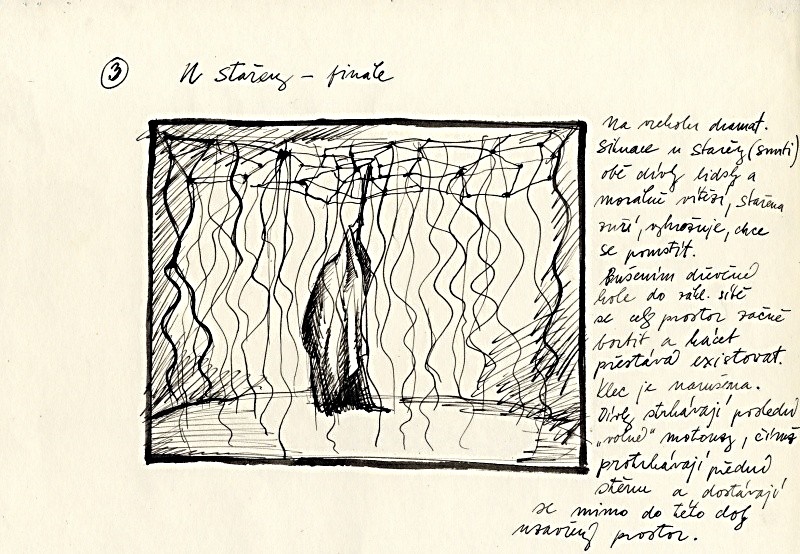 3 U stařeny - finále
Na vrcholu dramat.
situace u stařeny (smrti)
obě dívky lidsky a
morálně vítězí, stařena
zuří, vyhrožuje, chce
se pomstít.
Bušením dřevěné
hole do zákl. sítě
se celý prostor začne
bortit a kácet
přestává existovat.
Klec je narušena.
Dívky strhávají poslední
„volné" motouzy, čímž
protrhávají přední
stěnu a dostávají
se mimo do této doby
uzavřený prostor.